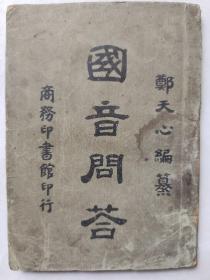 鄭天心編纂
國音問荅
商務印書館印行